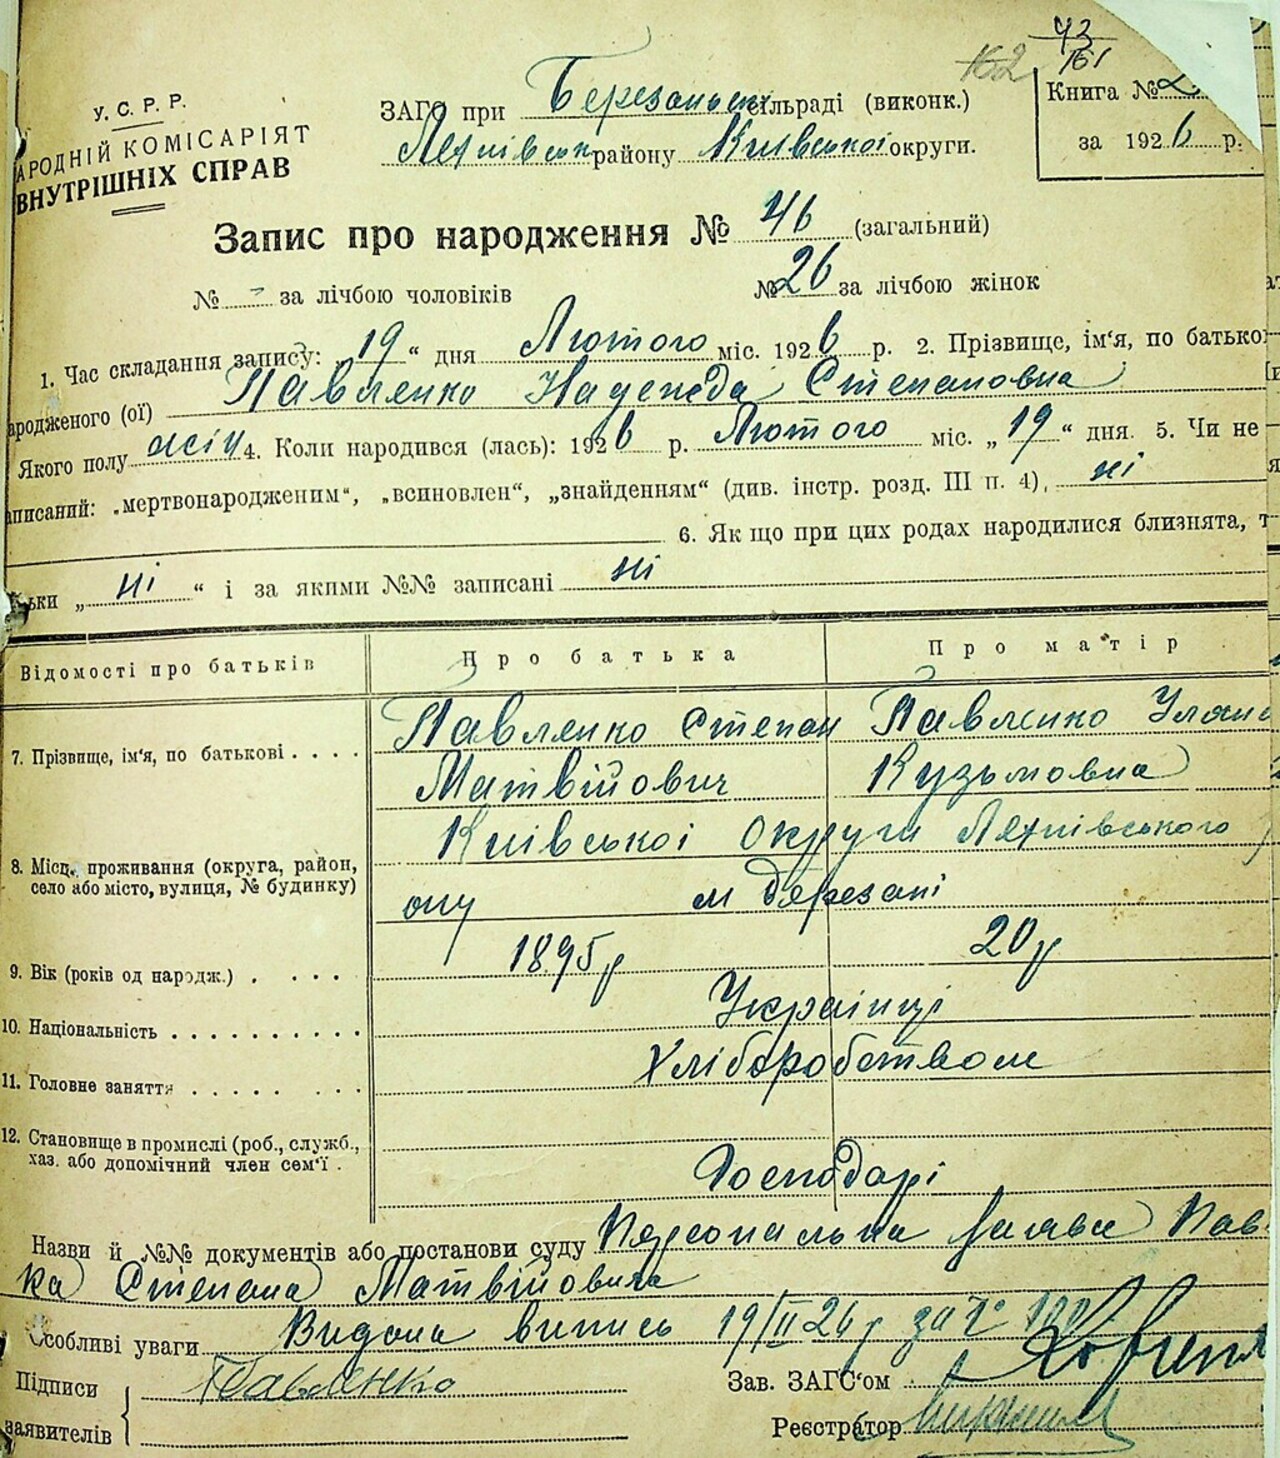 43
162 161
У. С. Р. Р.
АРОДНІЙ КОМІСАРІЯТ
ВНУТРІШНІХ СПРАВ
ЗАГС при Березанськ сільраді (виконк.)
Яготинівськ району Київської округи.
Книга №
за 1926 р.
Запис про народження № 46 (загальний)
№ - за лічбою чоловіків № 26 за лічбою жінок
1. Час складання запису: „19“ дня Лютого міс. 1926 р. 2. Прізвище, ім'я, по батько
ародженого (ої) Павленко Надежда Степановна
Якого полу жін 4. Коли народився (лась): 1926 р. Лютого міс. „19“ дня. 5. Чи не
аписаний: „мертвонародженим“, „всиновлен“, „знайденням“ (див. інстр. розд. III п. 4), ні
6. Як що при цих родах народилися близнята, т
ьки „ні“ і за якими №№ записані ні
Відомості про батьків Про батька Про матір
7. Прізвище, ім'я, по батькові . . . . Павленко Степан Павленко Уляна
Матвійович Кузьмовна
8. Місц. проживання (округа, район, село або місто, вулиця, № будинку) Київської Округи
ону м Березані
9. Вік (років од народж.) . . . . 1895р 20р
10. Національність . . . . . . . . . . Українці
11. Головне заняття . . . . . . . . Хліборобством
12. Становище в промислі (роб., служб.,
хаз. або допомічний член сем'ї . Господарі
Назви й №№ документів або постанови суду Персональна заява Пав
ка Степана Матвійовича
Особливі уваги Видана випись 19/II 26р за №
Підписи Павленко
заявителів
Зав. ЗАГС'ом
Реєстратор